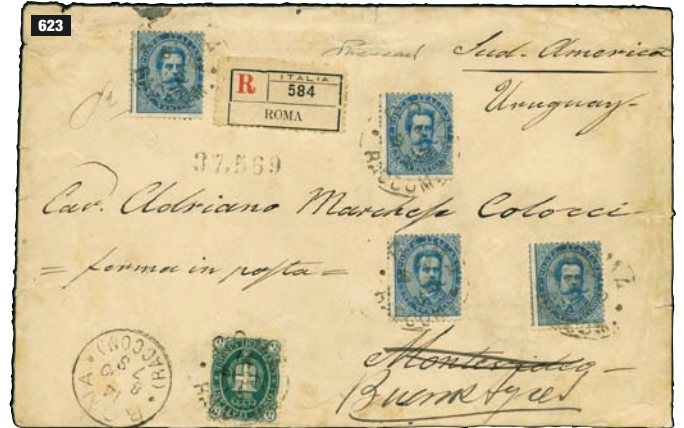 623
Sud-America
Uruguay
R
ITALIA
584
ROMA
37.569
Cav. Adriano Marchese Colocci
= ferma in posta =
Montevideo
Buenos Ayres
ROMA
(RACCOM)